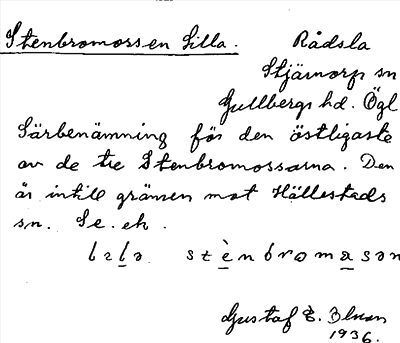 Stenbromossen Lilla. Rådsla
Stjärnorp sn
Gullbergs hd. Ögl
Särbenämning för den östligaste
av de tre Stenbromossarna. Den
är intill gränsen mot Hällestads
sn. Se. ek.
lɛla stènbromasən
Gustaf E.
1936.